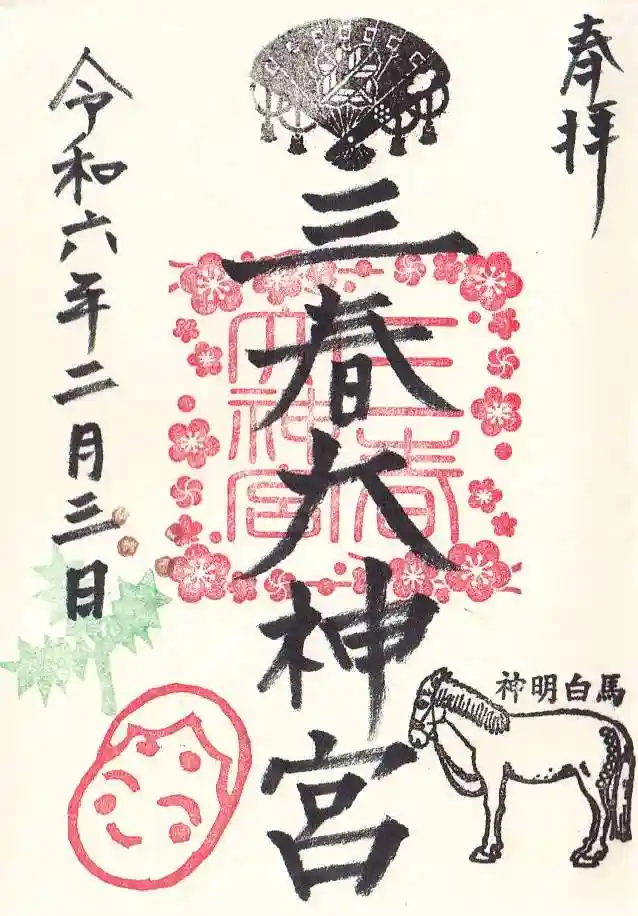 奉拝
三春大神宮
三春大神宮
令和六年二月三日
神明白馬